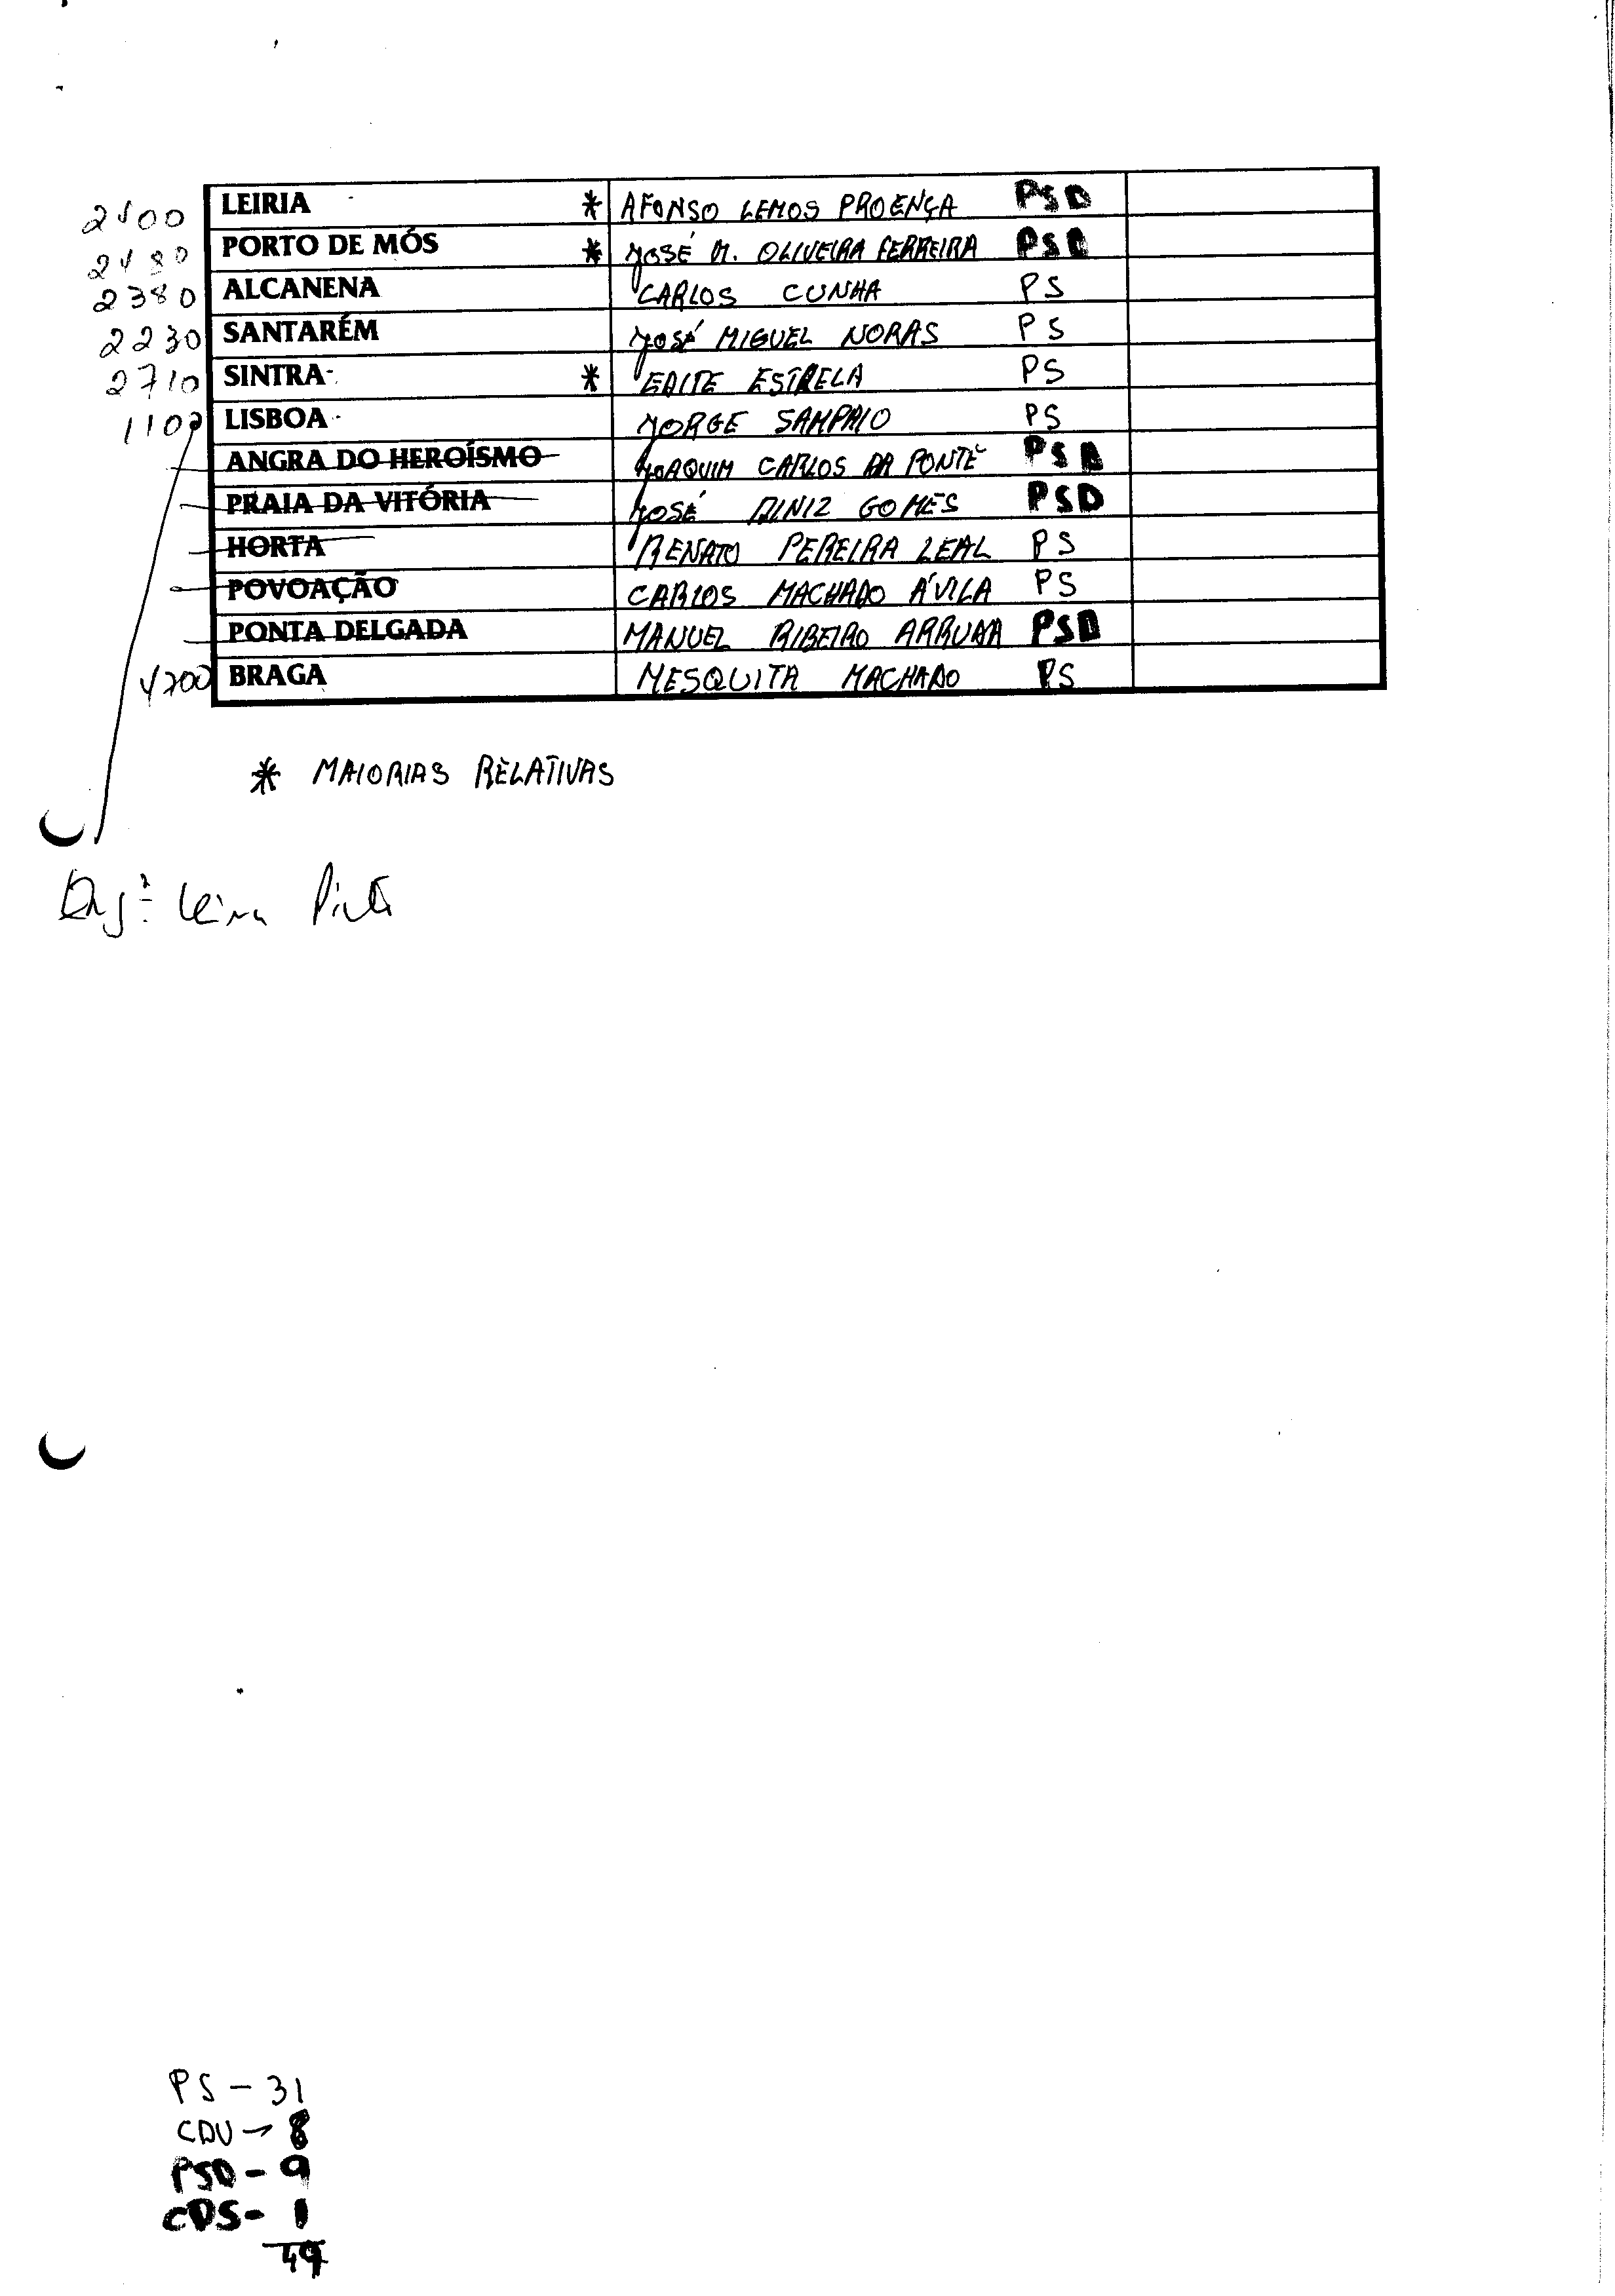 2400 LEIRIA * AFONSO LEMOS PROENÇA PSD
2480 PORTO DE MÓS * JOSÉ M. OLIVEIRA FERREIRA PSD
2380 ALCANENA CARLOS CUNHA PS
2230 SANTARÉM JOSÉ MIGUEL NORAS PS
2710 SINTRA * EDITE ESTRELA PS
1100 LISBOA JORGE SAMPAIO PS
ANGRA DO HEROÍSMO JOAQUIM CARLOS DA PONTE PSD
PRAIA DA VITÓRIA JOSÉ DINIZ GOMES PSD
HORTA RENATO PEREIRA LEAL PS
POVOAÇÃO CARLOS MACHADO ÁVILA PS
PONTA DELGADA MANUEL RIBEIRO ARRUDA PSD
4700 BRAGA MESQUITA MACHADO PS
* MAIORIAS RELATIVAS
Engº Pinto
PS - 31
CDU - 8
PSD - 9
CDS - 1
49